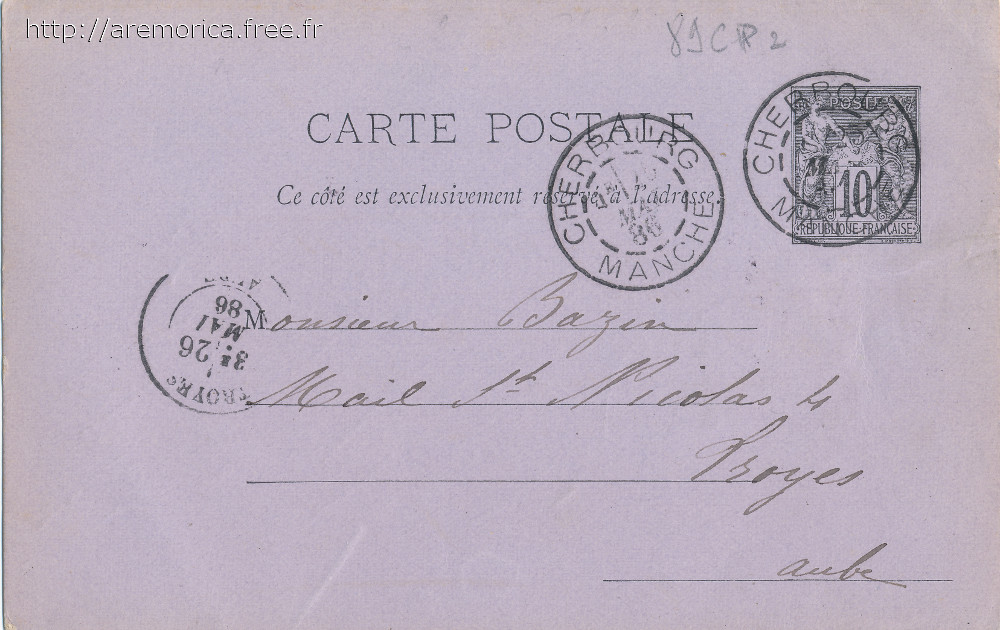 http://aremorica.free.fr
89CP2
CARTE POSTALE
Ce côté est exclusivement réservé à l'adresse.
CHERBOURG
MAI
86
MANCHE
CHERBOURG
POSTES
10
REPUBLIQUE FRANÇAISE
TROYES
3E
26
MAI
86
Monsieur Bazin
Mail St Nicolas 4
Troyes
aube